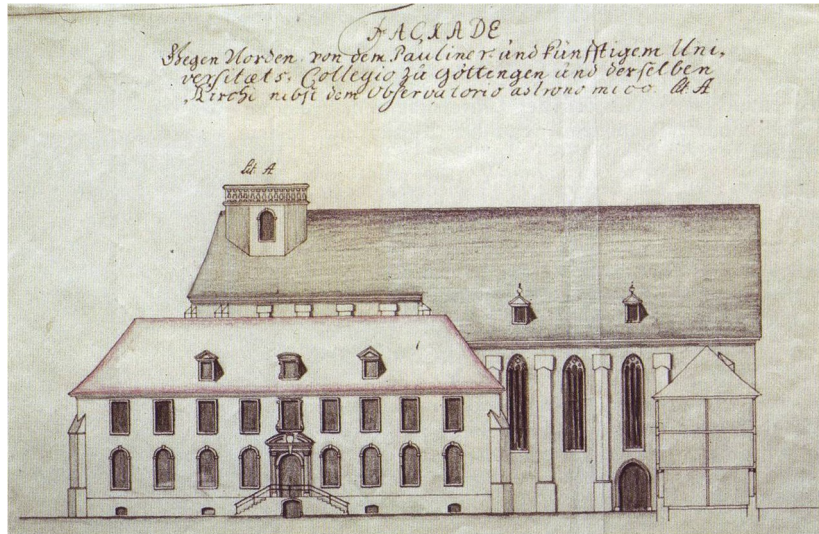 FACXADE
Gegen Norden von dem Pauliner und künfftigem Uni,
versitæts. Collegio zu Göttengen und derselben
Kirche nebst dem Observatorio astronomico. Lit. A
Lit. A